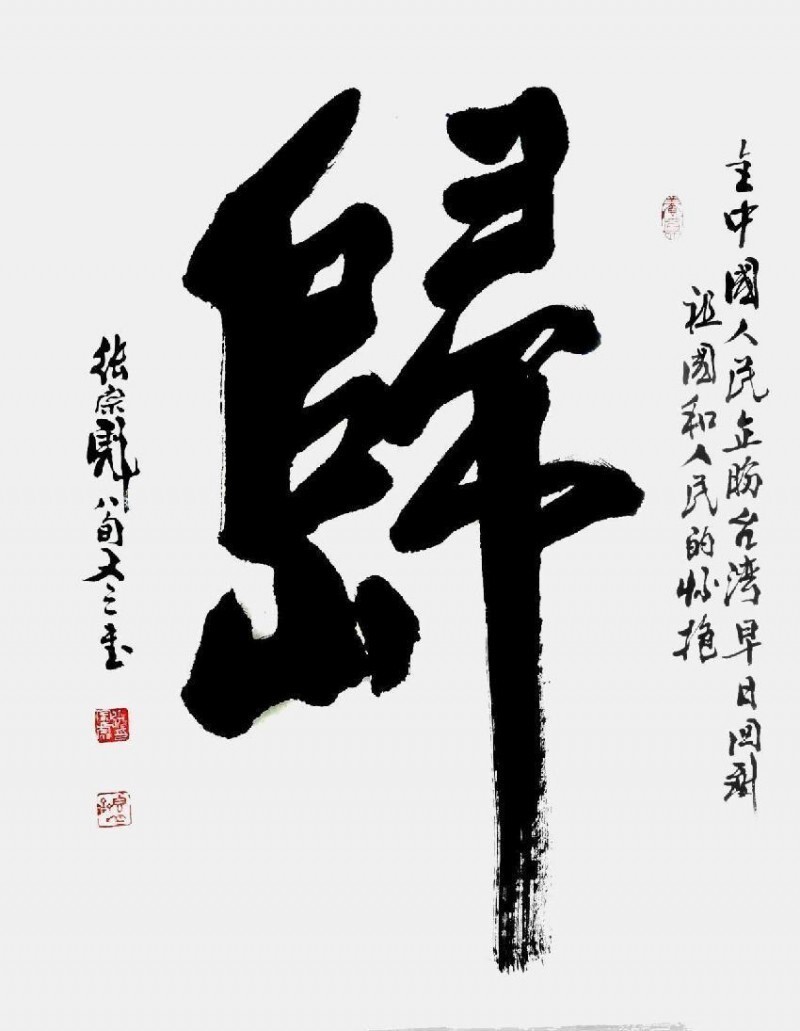 全中國人民企盼台湾早日回到
祖國和人民的怀抱
歸
張宗彪八旬又三書